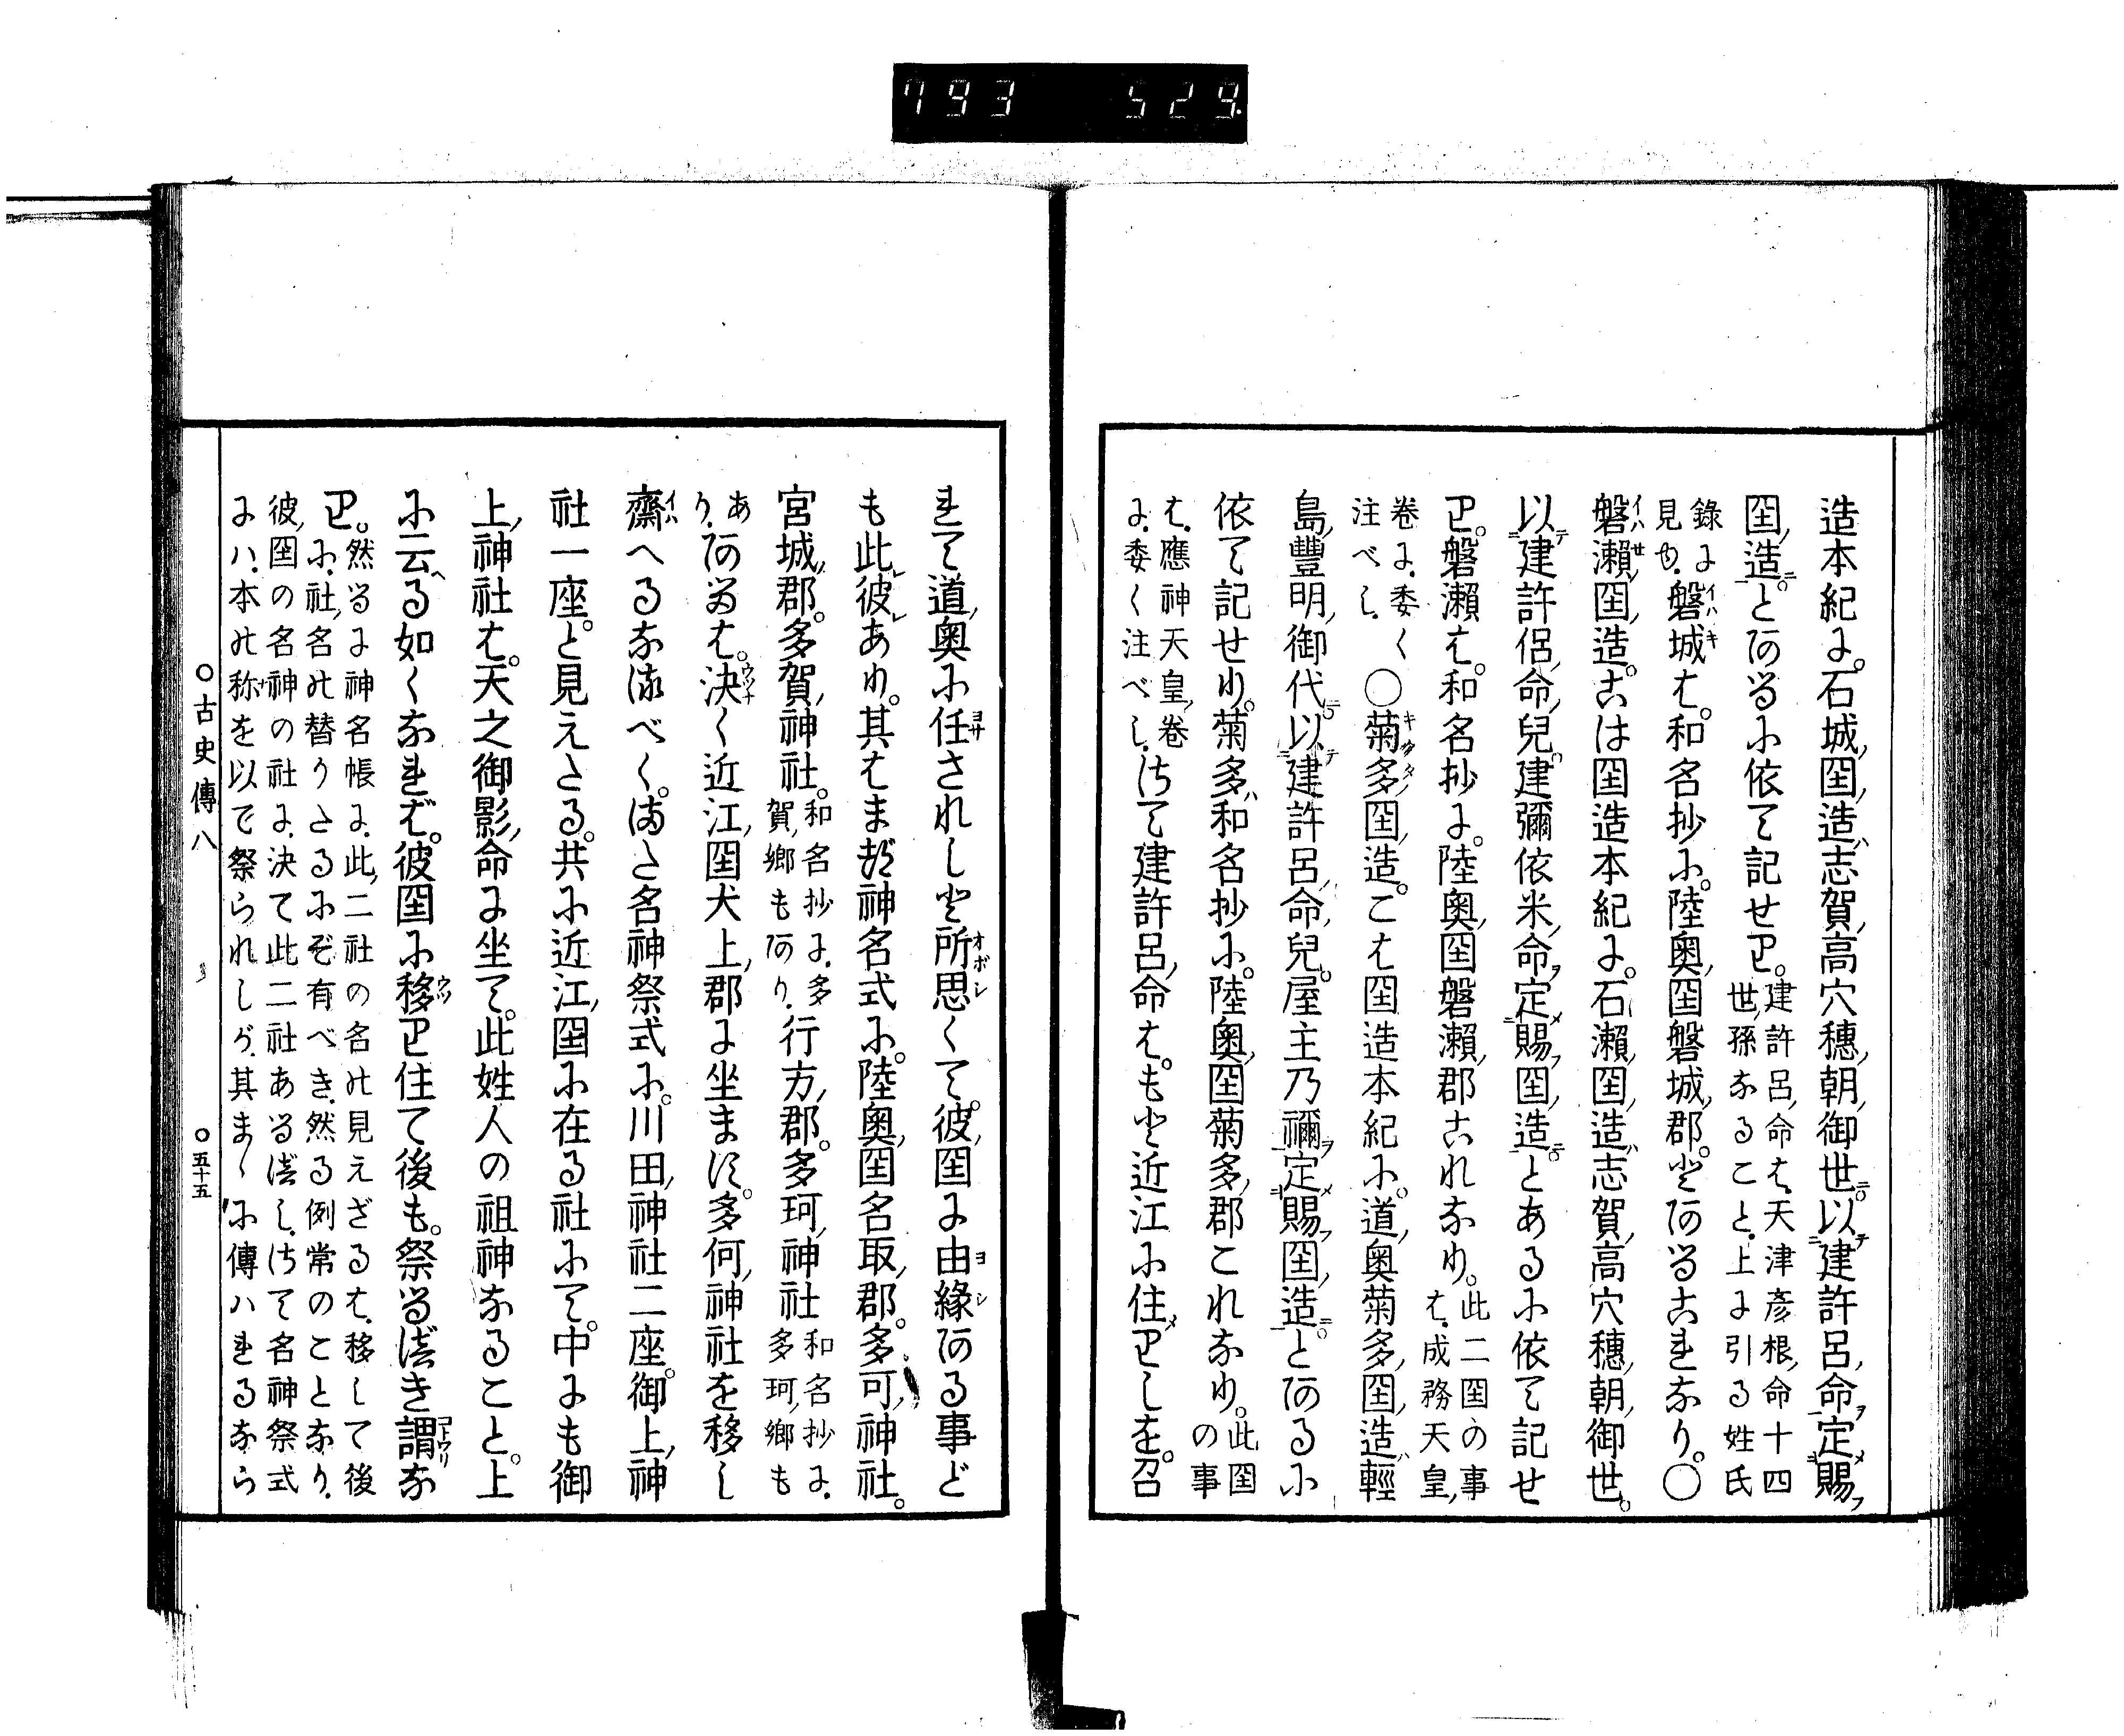 793 529.
造本紀に。石城國造志賀高穴穗朝御世。以建許呂命定賜
國造。とあるに依て記せり。建許呂命は天津彥根命十四
世孫なること。上に引る姓氏
錄に
見ゆ。磐城は。和名抄に。陸奧國磐城郡。とあるこれなり。○
磐瀨國造。こは國造本紀に。石瀨國造志賀高穴穗朝御世。
以建許侶命兒建彌依米命定賜國造。とあるに依て記せ
り。磐瀨は。和名抄に。陸奧國磐瀨郡これなり。此二國の事
は。成務天皇
卷に。委く
注べし。○菊多國造。こは國造本紀に。道奧菊多國造輕
島豐明御代以建許呂命兒。屋主乃禰定賜國造。とあるに
依て記せり。菊多和名抄に。陸奧國菊多郡これなり。此國
の事
は。應神天皇卷
に。委く注べし。さて建許呂命は。もと近江に住りしを。召
れて道奧に任されしと所思くて。彼國に由緣ある事ど
も此彼あり。其はまづ神名式に。陸奧國名取郡。多可神社。
宮城郡。多賀神社。和名抄に。多
賀鄉もあり。行方郡。多珂神社和名抄に。
多珂鄉も
あ
り。あるは。決く近江國犬上郡に坐ます。多何神社を移し
齋へるなるべく。また名神祭式に。川田神社二座。御上神
社一座。と見えたる。共に近江國に在る社にて。中にも御
上神社は。天之御影命に坐て。此姓人の祖神なること。上
に云る如くなれば。彼國に移り住て後も。祭るべき謂な
り。然るに神名帳に。此二社の名の見えざるは。移して後
に。社名の替りたるにぞ有べき。然る例常のことなり。
彼國の名神の社に。決て此二社あるべし。さて名神祭式
にハ。本の称を以て祭られしが。其まゝに傳ハれるなら
○古史傳八
○五十五